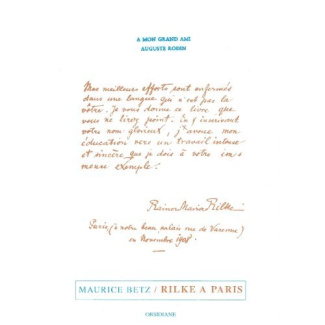 A MON GRAND AMI
AUGUSTE RODIN
Mes meilleurs efforts sont enfermés
dans une langue qui n'est pas la
vôtre. Je vous donne ce livre que
vous ne lirez point. En y inscrivant
votre nom glorieux, j'avoue mon
éducation vers un travail intense
et sincère que je dois à votre im-
mense exemple.
Rainer Maria Rilke
Paris (à notre beau palais rue de Varenne)
en Novembre 1908.
MAURICE BETZ / RILKE A PARIS
OBSIDIANE